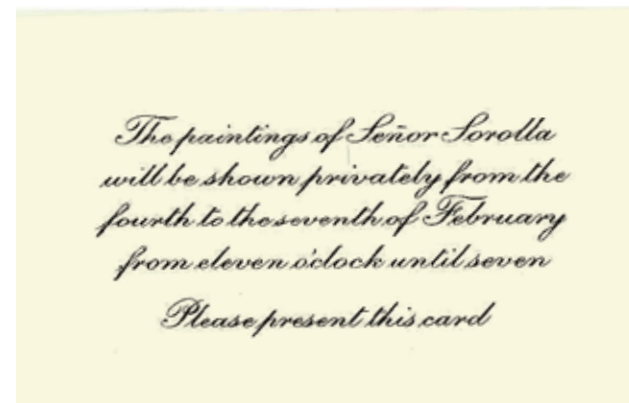 The paintings of Señor Sorolla
will be shown privately from the
fourth to the seventh of February
from eleven o'clock until seven
Please present this card